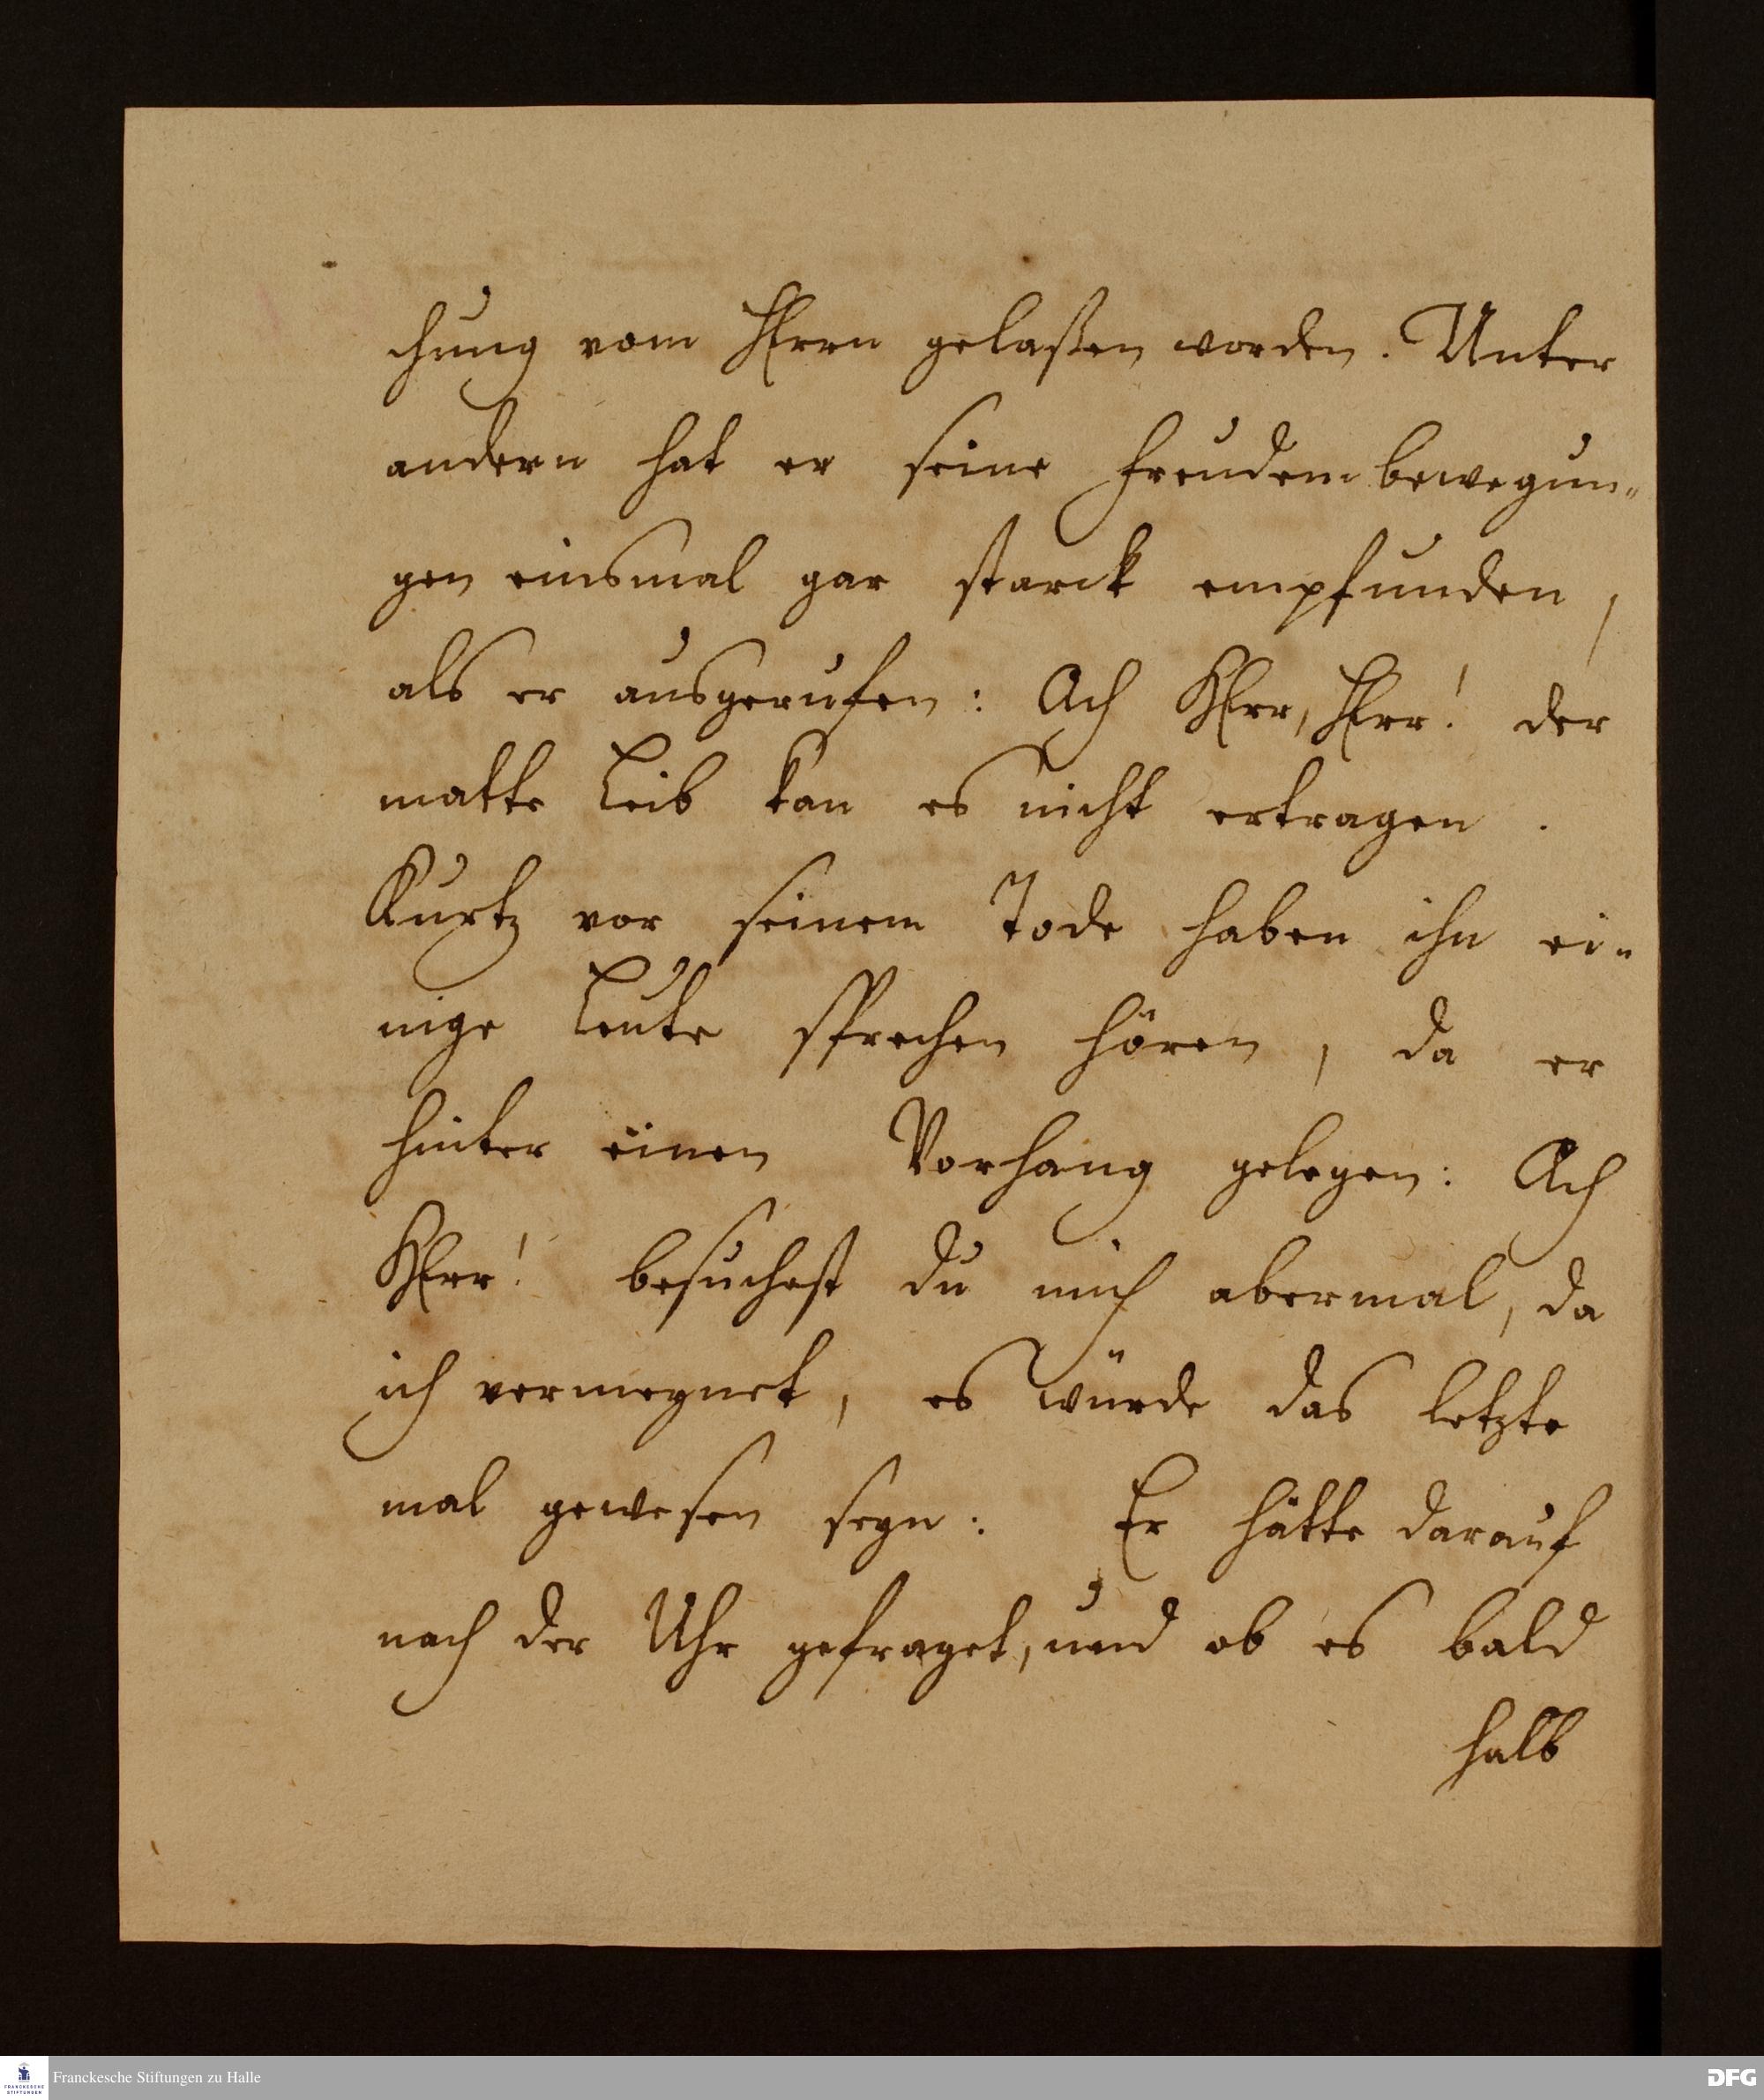 chung vom HErrn gelaßen worden. Unter
andern hat er seine freudenbewegun-
gen einsmal gar starck empfunden,
als er ausgerufen: Ach HErr, HErr! der
matte Leib kan es nicht ertragen.
Kurtz vor seinem Tode haben ihn ei-
nige Leute sprechen hören, da er
hinter einen Vorhang gelegen: Ach
HErr! besuchest du mich abermal, da
ich vermeynet, es würde das letzte
mal gewesen seyn: Er hätte darauf
nach der Uhr gefraget, und ob es bald
halb
FRANCKESCHE STIFTUNGEN
Franckesche Stiftungen zu Halle
DFG